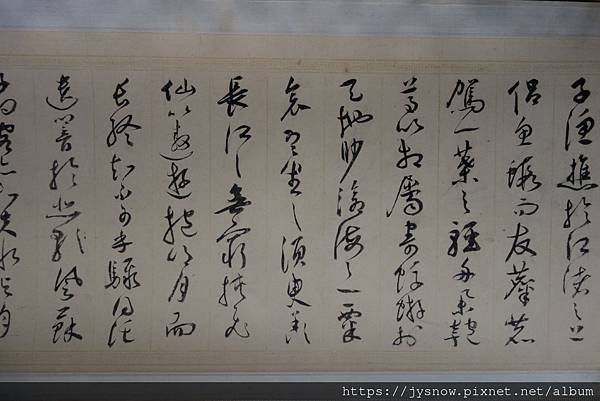 子漁樵於江渚之上
侶魚蝦而友麋鹿
駕一葉之輕舟舉匏
尊以相屬寄蜉蝣於
天地眇滄海之一粟
哀吾生之須臾羨
長江之無窮挾飛
仙以遨遊抱明月而
長終知不可乎驟得託
遺響於悲風蘇
子曰客亦知夫水與月
https://jysnow.pixnet.net/album